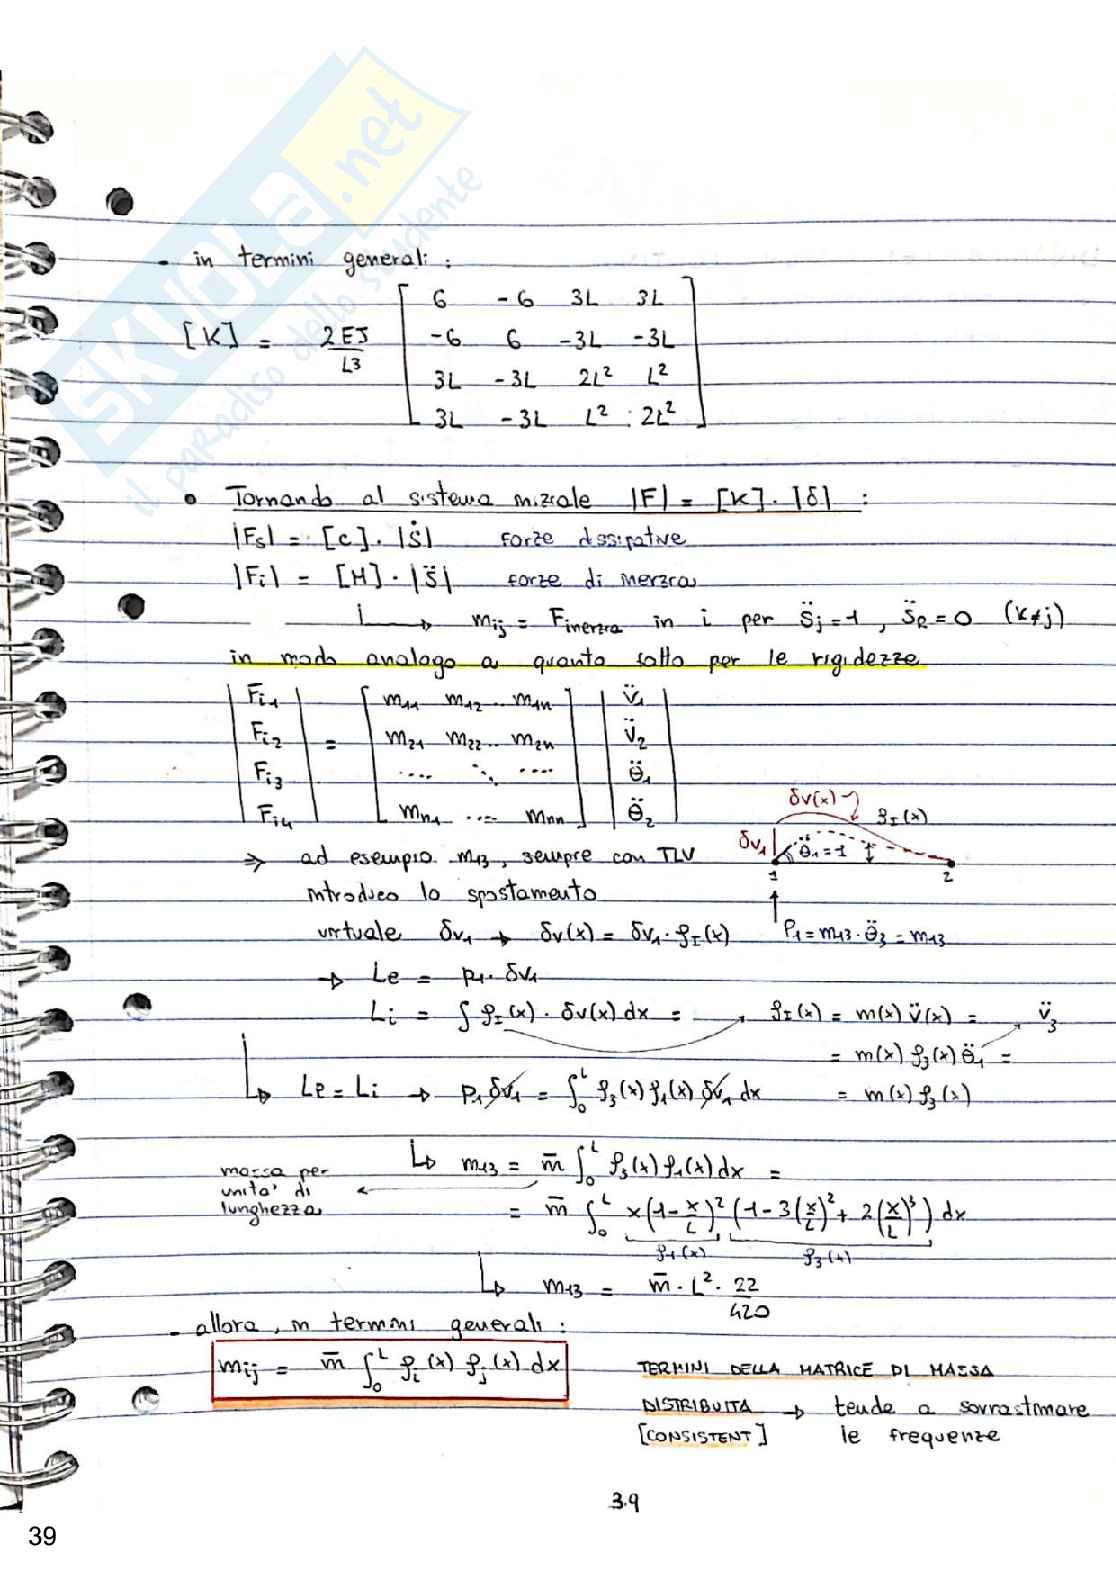 SKUOLA.net
il paradiso dello studente
- in termini generali :
[K] = 2EJ/L3 [ 6 -6 3L 3L
-6 6 -3L -3L
3L -3L 2L² L²
3L -3L L² 2L² ]
• Tornando al sistema iniziale |F| = [K]·|δ| :
|Fs| = [C]·|Ṡ| forze dissipative
|Fi| = [M]·|S̈| forze di inerzia
↳ mij = Finerzia in i per S̈j=1, S̈k=0 (k≠j)
in modo analogo a quanto fatto per le rigidezze
|Fi1| = [m11 m12 ... m1n] |v̈1|
|Fi2| [m21 m22 ... m2n] |v̈2|
|Fi3| [.... ⋱ ....] |θ̈1|
|Fi4| [mn1 .... mnn] |θ̈2|
δv(x) φI(x)
δv1 θ̈1=1
1 2
⇒ ad esempio m13, sempre con TLV
introduco lo spostamento
virtuale δv1 → δv(x) = δv1·φI(x) P1=m13·θ̈3=m13
→ Le = p1·δv1
Li = ∫ φI(x)·δv(x)dx = → φI(x) = m(x) v̈(x) = v̈3
= m(x) φ3(x) θ̈1 =
↳ Le=Li → p1 δv1 = ∫₀ᴸ φ3(x) φ1(x) δv1 dx = m(x) φ3(x)
↳ m13 = m̄ ∫₀ᴸ φ3(x) φ1(x) dx =
massa per
unita' di
lunghezza
= m̄ ∫₀ᴸ x(1-x/L)² (1-3(x/L)²+2(x/L)³) dx
φ1(x) φ3(x)
↳ m13 = m̄·L²·22/420
- allora, in termini generali :
mij = m̄ ∫₀ᴸ φi(x) φj(x) dx
TERMINI DELLA MATRICE DI MASSA
DISTRIBUITA → tende a sovrastimare
[CONSISTENT] le frequenze
3.9
39